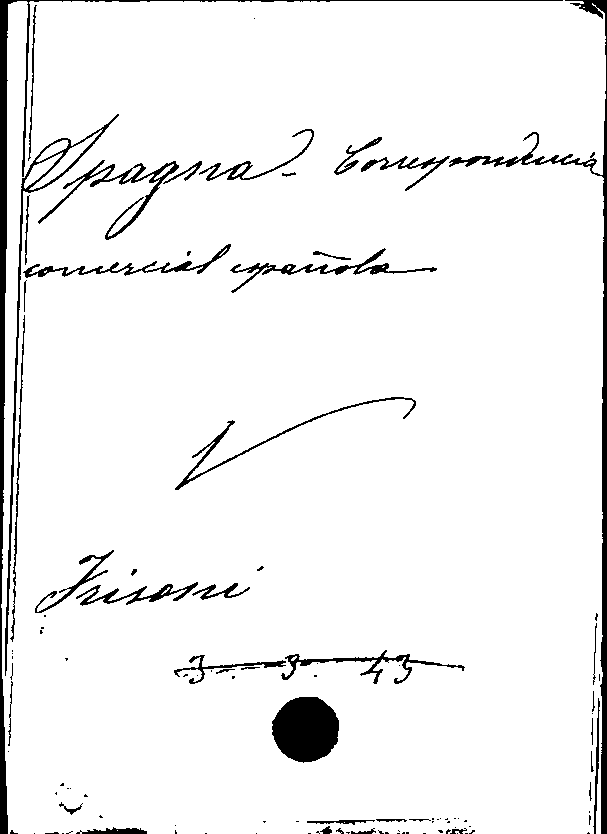 Spagna - Correspondencia
comercial española
V
Frisoni
3. 3. 43